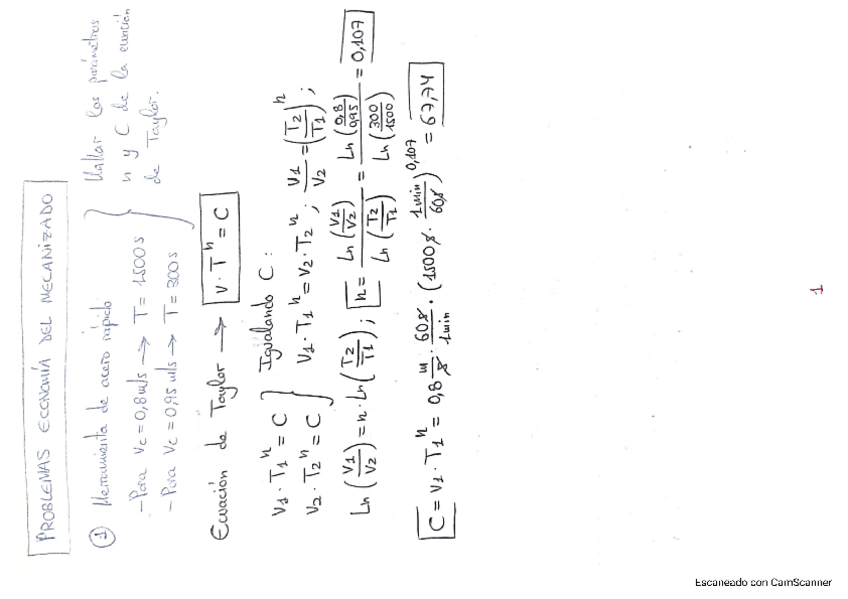 PROBLEMAS ECONOMÍA DEL MECANIZADO
① Herramienta de acero rápido
-Para Vc = 0,8 m/s → T = 1500 s
-Para Vc = 0,95 m/s → T = 300 s
Hallar los parámetros
n y C de la ecuación
de Taylor.
Ecuación de Taylor → V · T^n = C
V1 · T1^n = C
V2 · T2^n = C
Igualando C:
V1 · T1^n = V2 · T2^n ; V1/V2 = (T2/T1)^n ;
Ln(V1/V2) = n · Ln(T2/T1) ; n = Ln(V1/V2) / Ln(T2/T1) = Ln(0,8/0,95) / Ln(300/1500) = 0,107
C = V1 · T1^n = 0,8 m/s · 60s/1min · (1500s · 1min/60s)^0,107 = 67,74
1
Escaneado con CamScanner